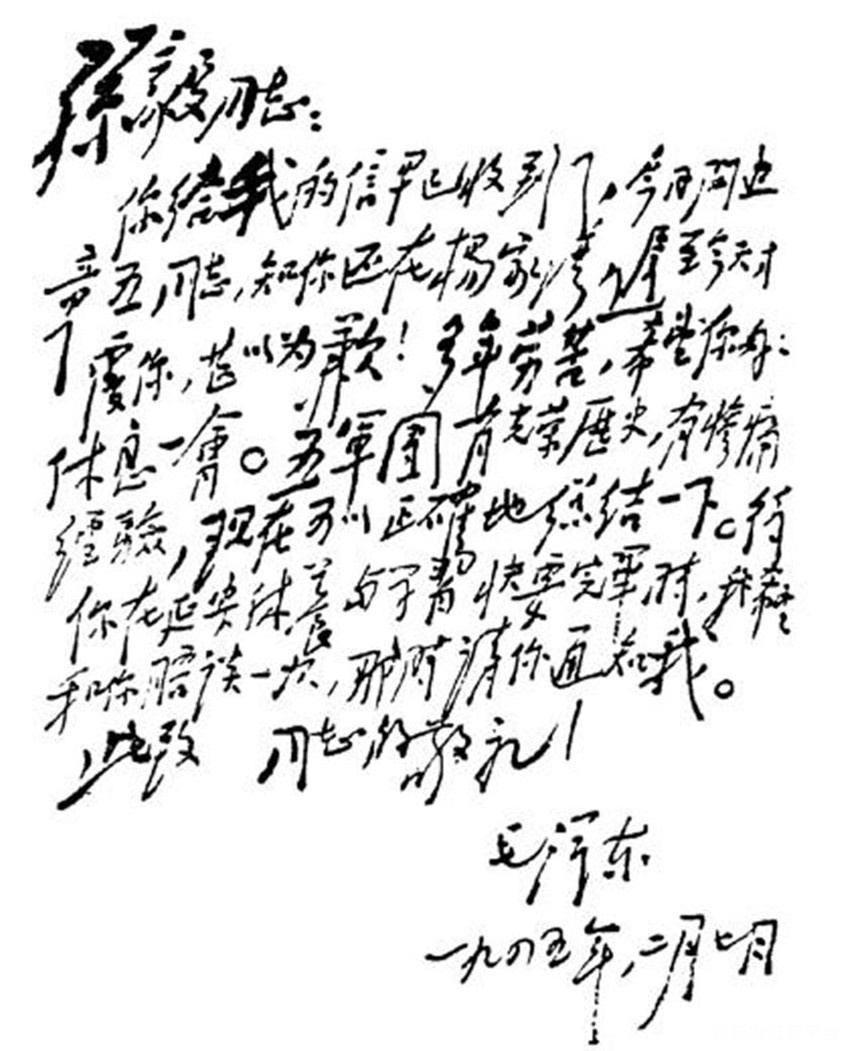 孫毅同志:
你給我的信早已收到了,今日問過
彭五同志,知你还在楊家湾,遲至今天才
覆你,甚以为歉!多年劳苦,希望你好:
休息一會。五軍團有光荣歷史,有惨痛
經驗,现在可以正確地總結一下。待
你在延安休養与学習快要完畢时,我擬
和你晤谈一次,那时请你通知我。
此致 同志的敬礼!
毛泽东
一九四五年,二月七日